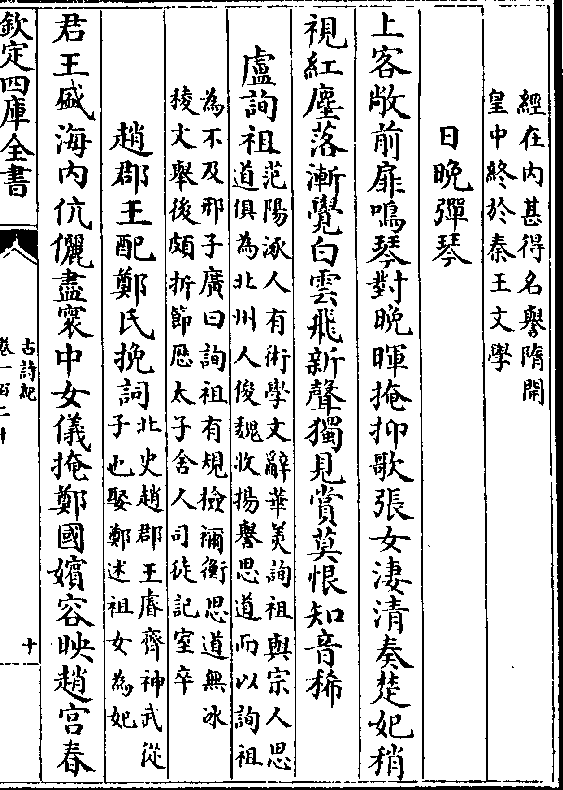 經在内甚得名譽隋開
皇中終於秦王文學
日晚彈琴
上客敞前扉鳴琴對晚暉掩抑歌張女淒清奏楚妃稍
視紅塵落漸覺白雲飛新聲獨見賞莫恨知音稀
盧詢祖
范陽涿人有術學文辭華美詢祖與宗人思
道俱為北州人俊魏收揚譽思道而以詢祖
為不及邢子廣曰詢祖有規檢禰衡思道無冰
稜文舉後頗折節歴太子舍人司徒記室卒
趙郡王配鄭氏挽詞
北史趙郡王㕡齊神武從
子也娶鄭述祖女為妃
君王盛海内伉儷盡寰中女儀掩鄭國嬪容映趙宫春
欽定四庫全書
古詩紀
卷一百二十
十